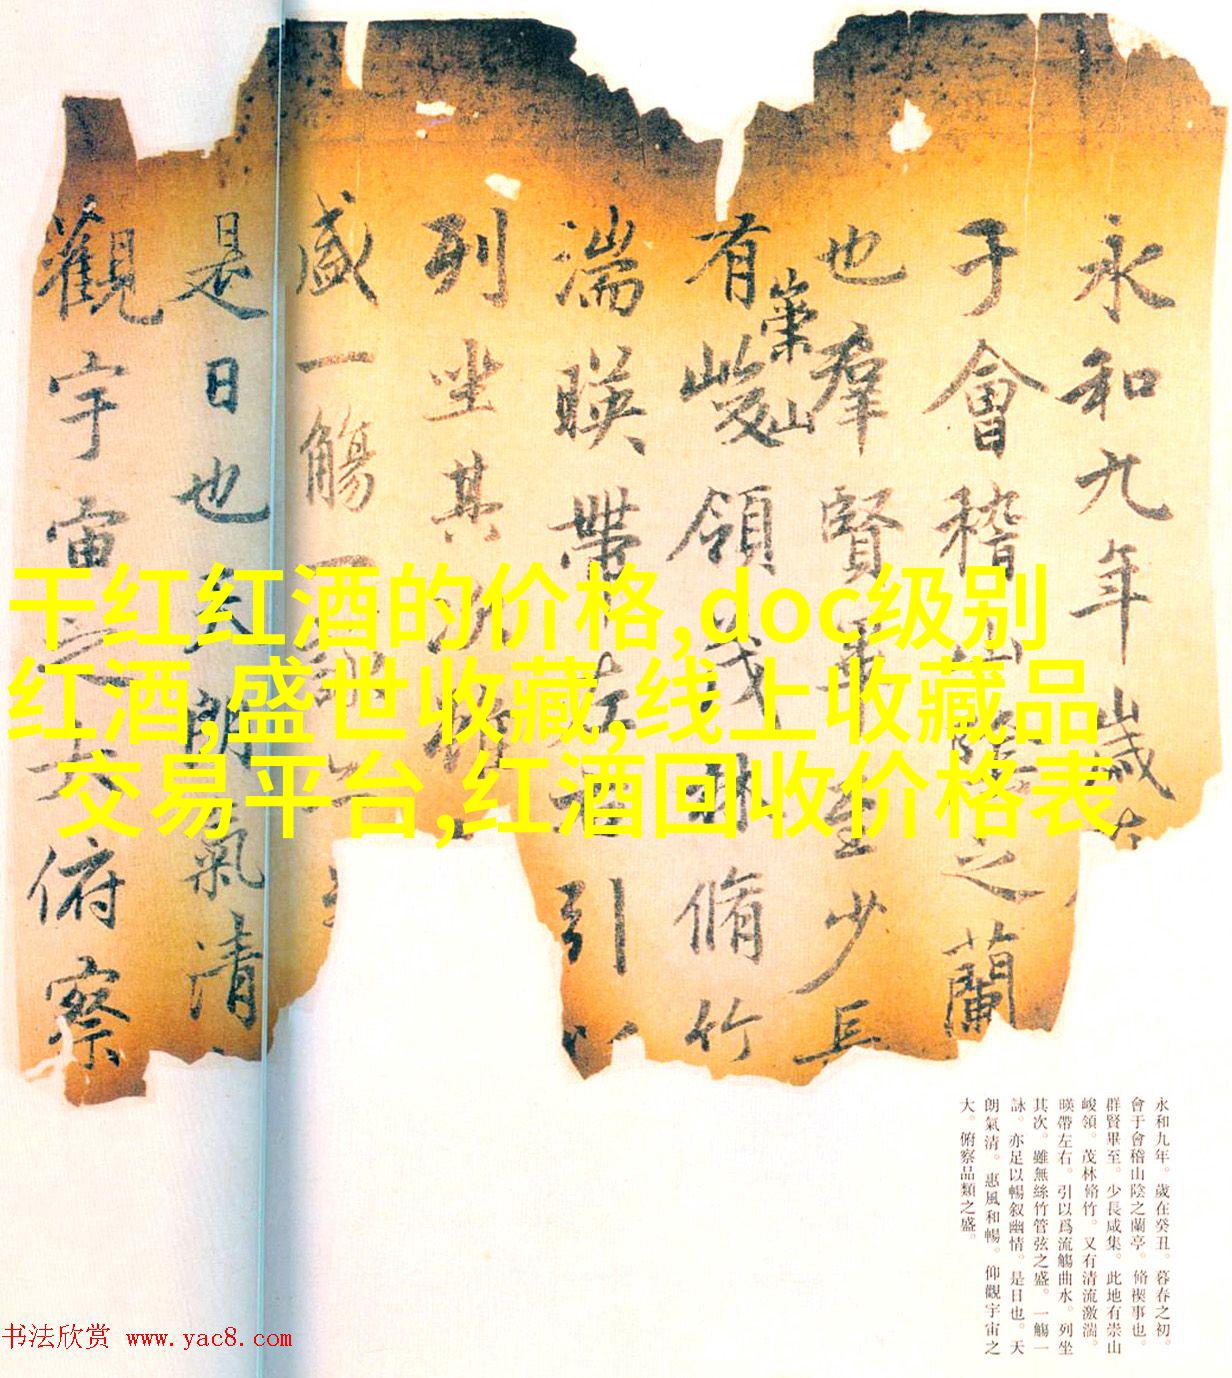 永和九年歲在
于會稽山陰之蘭
也羣賢畢至少長
有崇山峻領茂林脩竹
湍暎帶左右引以
列坐其次
盛一觴一詠亦
是日也天朗氣清
觀宇宙之大俯察
干红红酒的价格,doc级别
红酒,盛世收藏,线上收藏品
交易平台,红酒回收价格表
永和九年。歲在癸丑。暮春之初。
會于會稽山陰之蘭亭。脩禊事也。
群賢畢至。少長咸集。此地有崇山
峻領。茂林脩竹。又有清流激湍。
暎帶左右。引以爲流觴曲水。列坐
其次。雖無絲竹管弦之盛。一觴一
詠。亦足以暢叙幽情。是日也。天
朗氣清。惠風和暢。仰觀宇宙之
大。俯察品類之盛。
书法欣赏 www.yac8.com